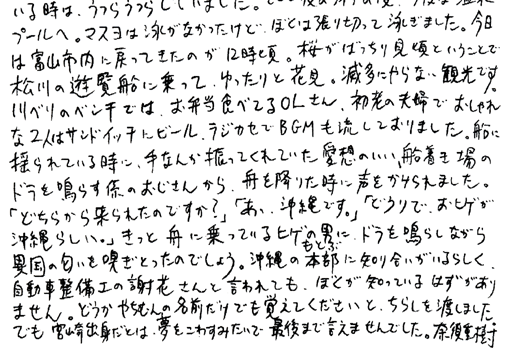 いる時は、うつらうつらしていました。
プールへ。マスヨは泳がなかったけど、ぼくは張り切って泳ぎました。今日
は富山市内に戻ってきたのが12時頃。桜がばっちり見頃ということで
松川の遊覧船に乗って、ゆったりと花見。滅多にやらない観光です。
川べりのベンチでは、お弁当食べてるOLさん、初老の夫婦で おしゃれ
な2人はサンドイッチにビール、ラジカセでBGMも流しておりました。船に
揺られている時に、手なんか振ってくれていた愛想のいい、船着き場の
ドラを鳴らす係のおじさんから、舟を降りた時に声をかけられました。
「どちらから来られたのですか?」「あっ、沖縄です。」「どうりで、おヒゲが
沖縄らしい。」きっと舟に乗っているヒゲの男に、ドラを鳴らしながら
異国の匂いを嗅ぎとったのでしょう。沖縄の本部(もとぶ)に知り合いがいるらしく、
自動車整備工の謝花さんと言われても、ぼくが知っているはずがあり
ません。どうかやちむんの名前だけでも覚えてくださいと、ちらしを渡しました
でも宮崎出身だとは、夢をこわすみたいで最後まで言えませんでした。奈須重樹